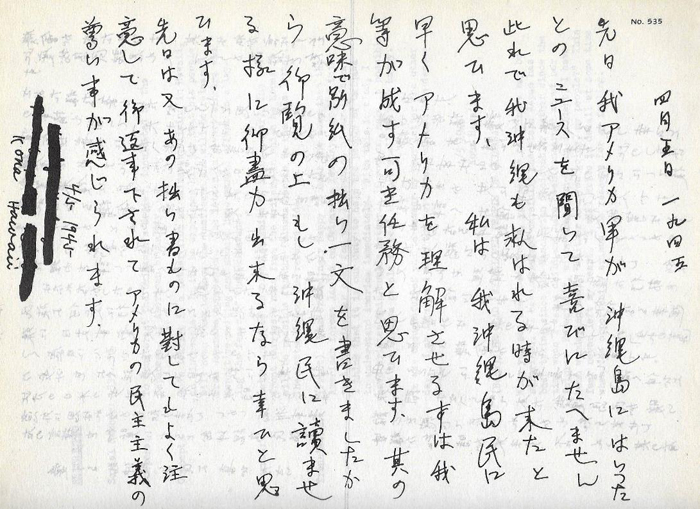 No. 535
四月五日 一九四五
先日 我アメリカ軍が 沖縄島にはいった
との ニュースを聞いて 喜びにたへません
此れで我沖縄も救はれる時が来たと
思ひます、 私は 我沖縄島民に
早くアメリカを理解させる事は我
等が成す可き任務と思ひます、其の
意味で別紙の拙い一文を書きましたか
ら 御覧の上 もし 沖縄民に読ませ
る様に御盡力出来るなら幸ひと思
ひます、
先日は又あの拙い書ものに対してよく注
意して御返事下されて アメリカの民主主義の
尊い事が感じられます、
4/5 1945
Kona Hawaii